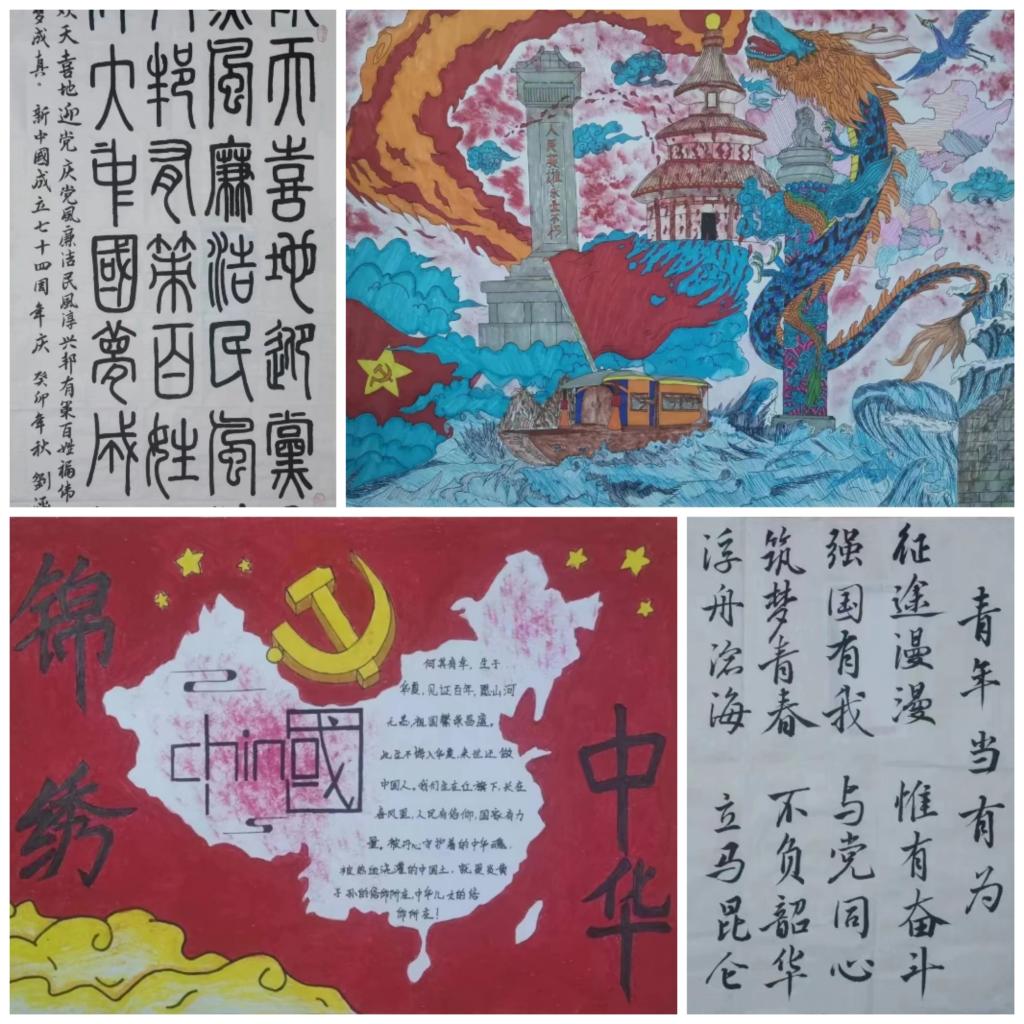 天喜地迎黨
風廉洁民風
邦有策百姓
大中國夢成
天喜地迎党庆党風廉洁民風淳兴邦有策百姓福伟
梦成真。新中國成立七十四周年庆 癸卯年秋 劉
人民英雄永垂不朽
锦绣
中华
chin國
何其有幸，生于
华夏，见证百年，愿山河
无恙，祖国繁荣昌盛。
此生不悔入华夏，来世还做
中国人。我们生在红旗下，长在
春风里，人民有信仰，国家有力
量。被丹心守护着的中华魂，
被热血浇灌的中国土，就是炎黄
子孙的信仰所在，中华儿女的信
仰所在！
青年当有为
征途漫漫 惟有奋斗
强国有我 与党同心
筑梦青春 不负韶华
浮舟沧海 立马昆仑